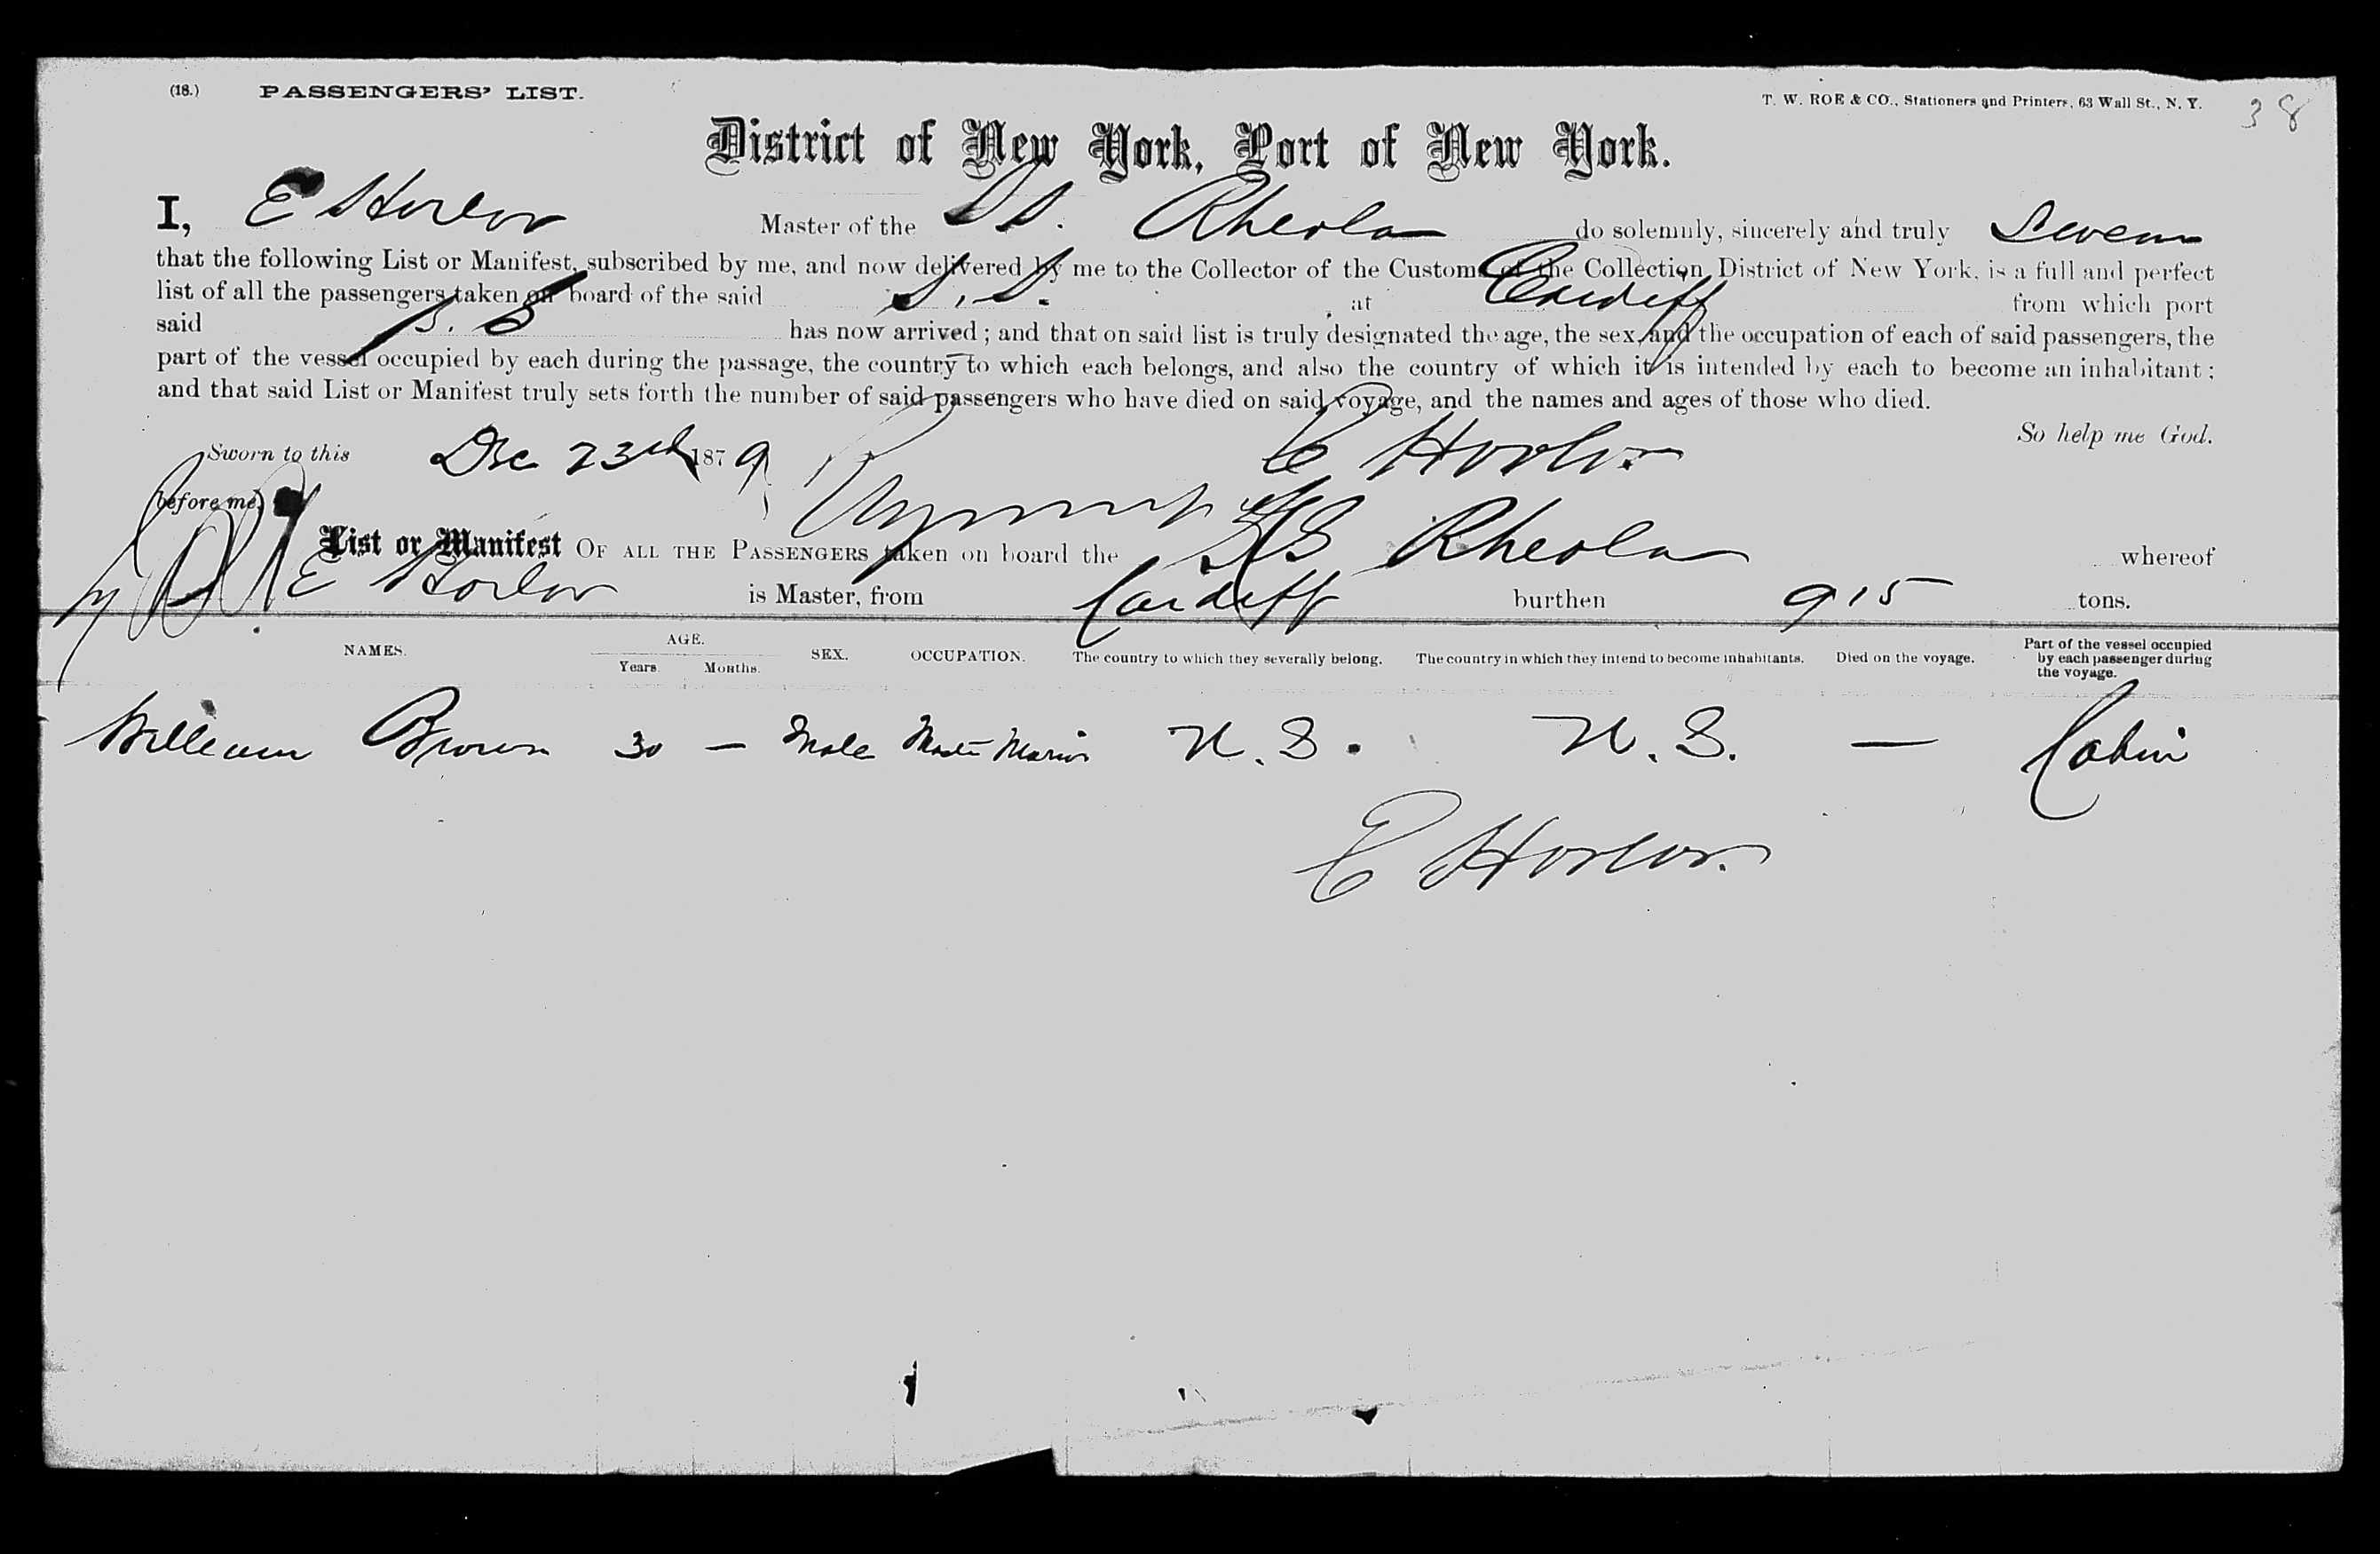 (18.) PASSENGERS' LIST. T. W. ROE & CO., Stationers and Printers, 63 Wall St., N. Y. 38
District of New York, Port of New York.
I, E Horlor Master of the SS. Rheola do solemnly, sincerely and truly Swear
that the following List or Manifest, subscribed by me, and now delivered by me to the Collector of the Customs of the Collection District of New York, is a full and perfect
list of all the passengers taken on board of the said S.S. at Cardiff from which port
said S.S has now arrived; and that on said list is truly designated the age, the sex, and the occupation of each of said passengers, the
part of the vessel occupied by each during the passage, the country to which each belongs, and also the country of which it is intended by each to become an inhabitant;
and that said List or Manifest truly sets forth the number of said passengers who have died on said voyage, and the names and ages of those who died.
So help me God.
Sworn to this Dec 23rd 1879 E Horlor
before me,
List or Manifest OF ALL THE PASSENGERS taken on board the SS Rheola whereof
E Horlor is Master, from Cardiff burthen 915 tons.
NAMES. AGE. Years. Months. SEX. OCCUPATION. The country to which they severally belong. The country in which they intend to become inhabitants. Died on the voyage. Part of the vessel occupied by each passenger during the voyage.
William Brown 30 — Male Master Marinr N.S. N.S. — Cabin
E Horlor.